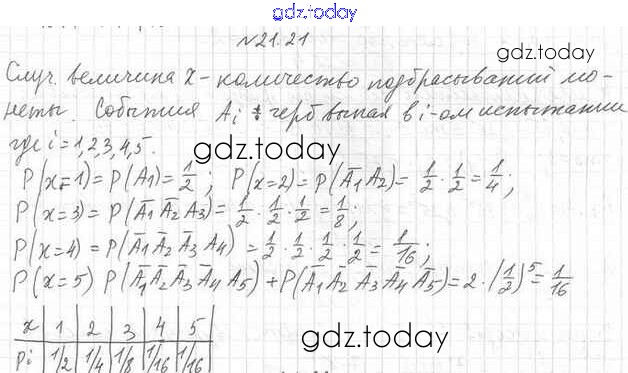 gdz.today
№21.21
gdz.today
Случ. величина X - количество подбрасываний мо-
неты. События Ai : герб выпал в i-ом испытании
где i = 1,2,3,4,5.
gdz.today
P(x=1) = P(A1) = 1/2 ; P(x=2) = P(A̅1 A2) = 1/2 · 1/2 = 1/4 ;
P(x=3) = P(A̅1 A̅2 A3) = 1/2 · 1/2 · 1/2 = 1/8 ;
P(x=4) = P(A̅1 A̅2 A̅3 A4) = 1/2 · 1/2 · 1/2 · 1/2 = 1/16 ;
P(x=5) P(A̅1 A̅2 A̅3 A̅4 A5) + P(A̅1 A̅2 A̅3 A̅4 A̅5) = 2 · (1/2)⁵ = 1/16
x | 1 | 2 | 3 | 4 | 5
gdz.today
Pi | 1/2 | 1/4 | 1/8 | 1/16 | 1/16